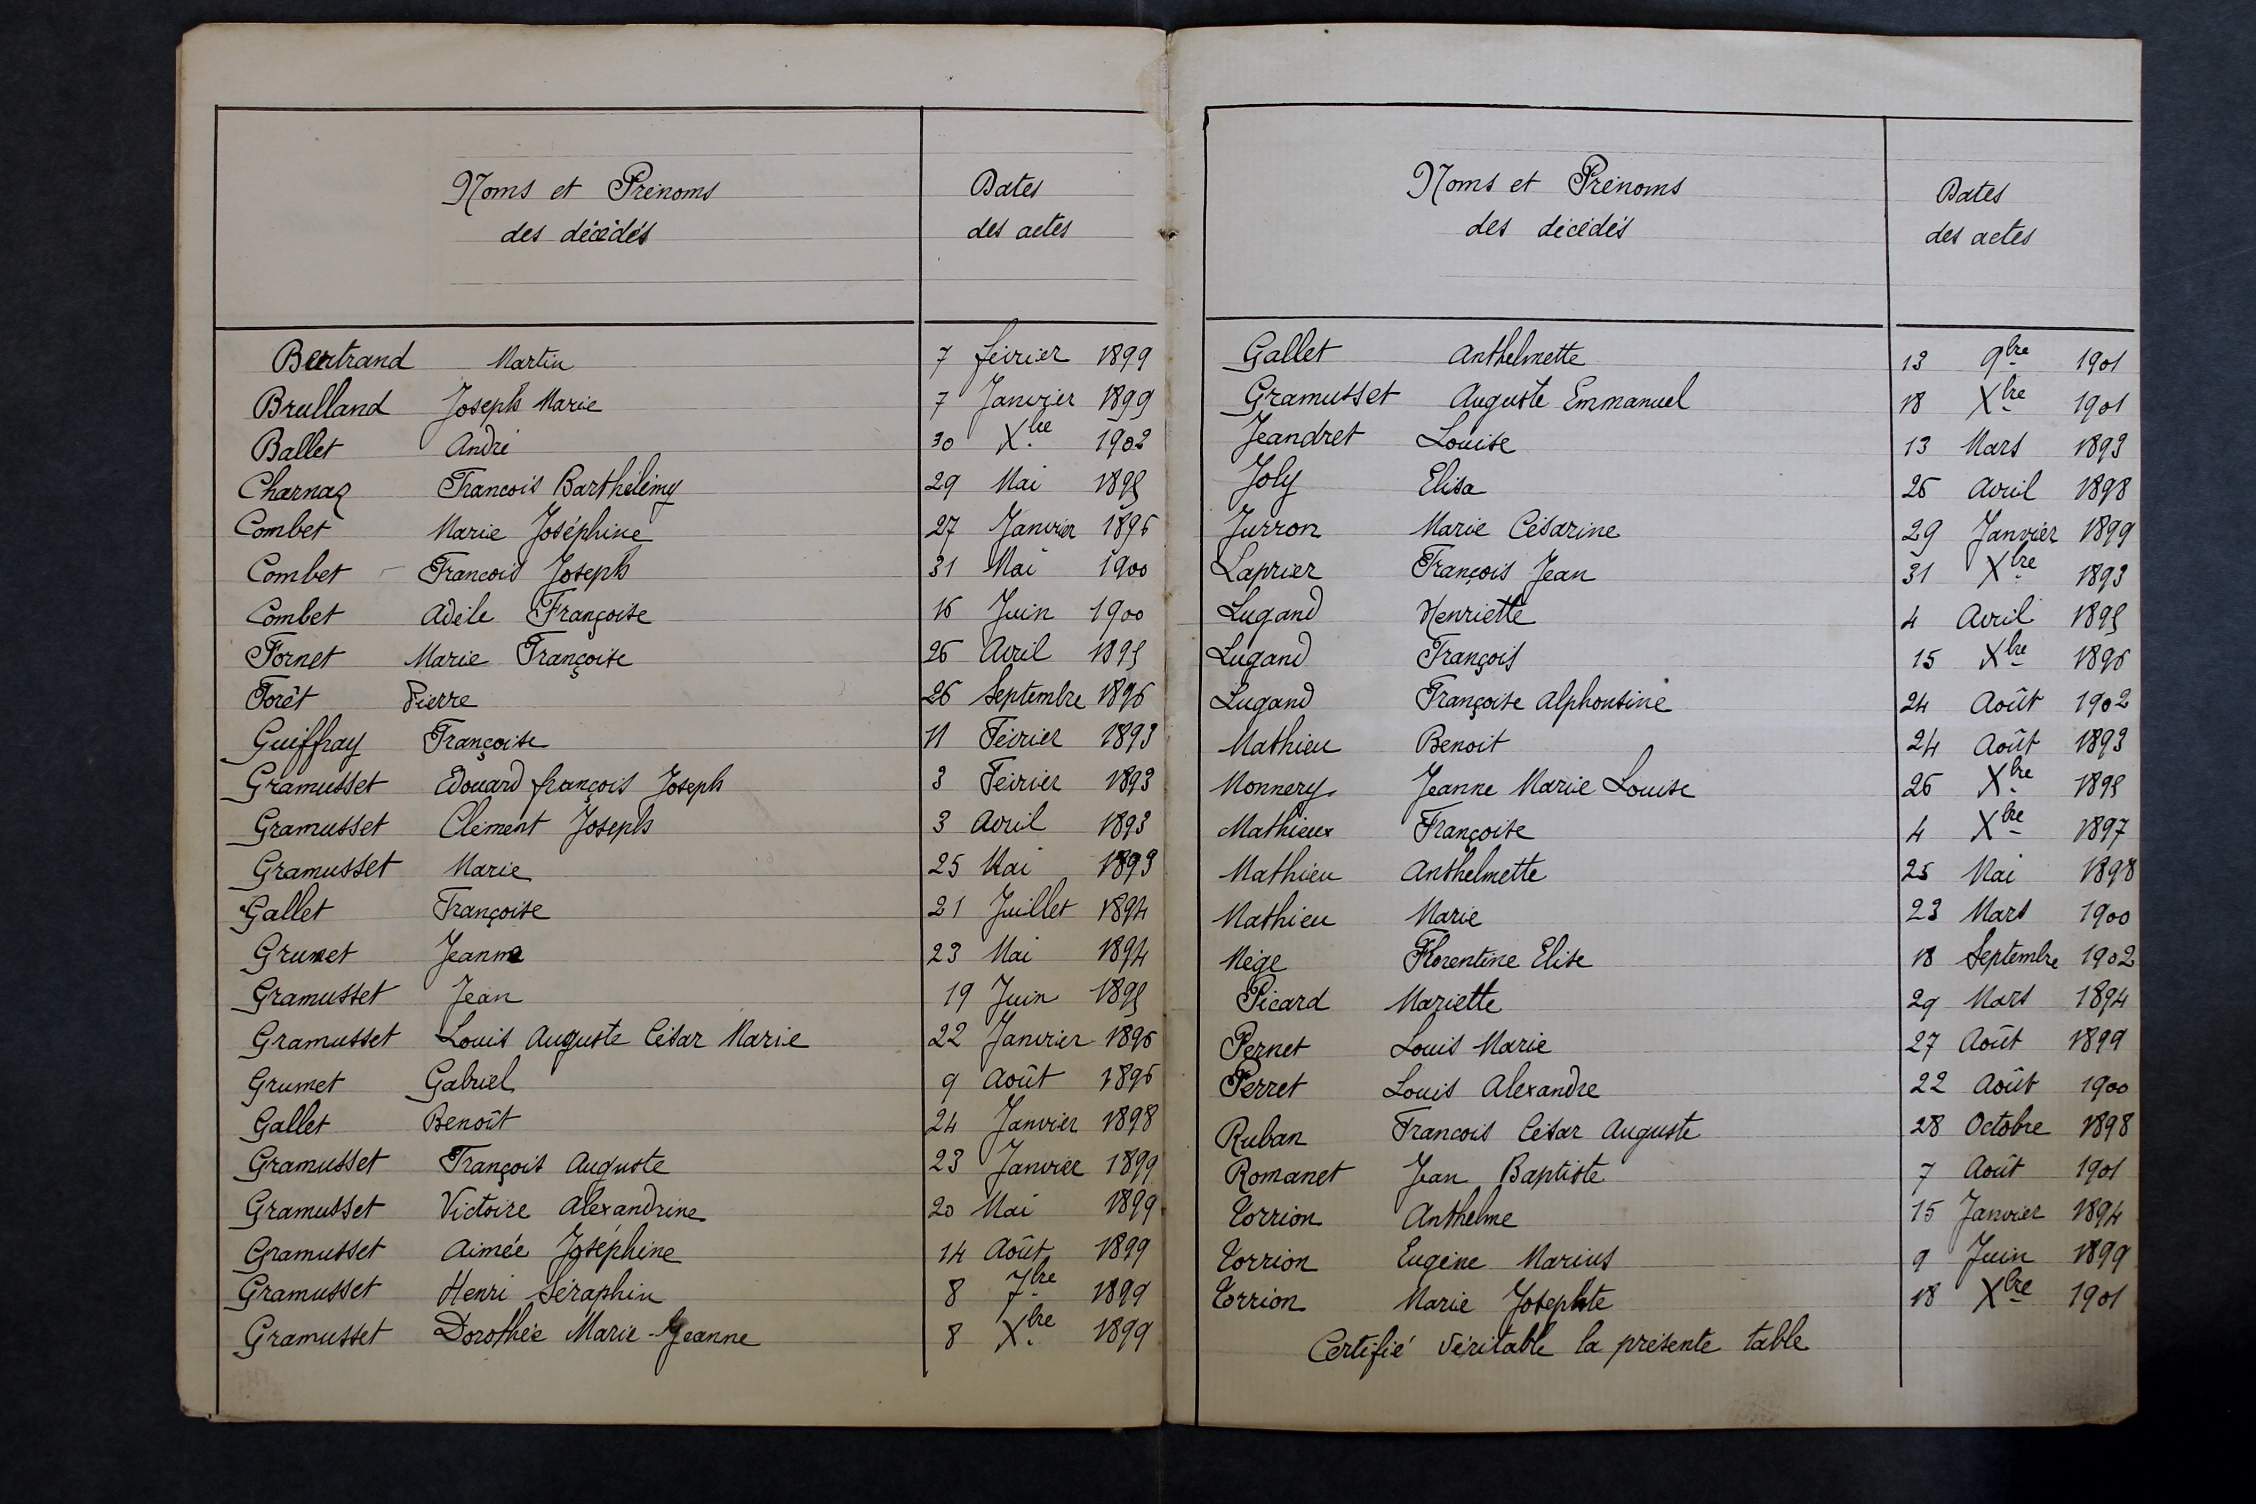 Noms et Prénoms
des décédés
Dates
des actes
Bertrand Martin 7 février 1899
Brulland Joseph Marie 7 Janvier 1899
Ballet André 30 Xbre 1902
Charnaz Francois Barthélémy 29 Mai 1895
Combet Marie Joséphine 27 Janvier 1896
Combet Francois Joseph 31 Mai 1900
Combet Adèle Françoise 16 Juin 1900
Fornet Marie Françoise 26 Avril 1895
Forêt Pierre 26 Septembre 1896
Guiffray Françoise 11 Février 1893
Gramusset Edouard françois Joseph 3 Février 1893
Gramusset Clément Joseph 3 Avril 1893
Gramusset Marie 25 Mai 1893
Gallet Françoise 21 Juillet 1894
Grumet Jeanne 23 Mai 1894
Gramusset Jean 19 Juin 1895
Gramusset Louis Auguste César Marie 22 Janvier 1896
Grumet Gabriel 9 Août 1896
Gallet Benoît 24 Janvier 1898
Gramusset François Auguste 23 Janvier 1899
Gramusset Victoire Alexandrine 20 Mai 1899
Gramusset Aimée Joséphine 14 Août 1899
Gramusset Henri Séraphin 8 7bre 1899
Gramusset Dorothée Marie-Jeanne 8 Xbre 1899
Noms et Prénoms
des décédés
Dates
des actes
Gallet Anthelmette 13 9bre 1901
Gramusset Auguste Emmanuel 18 Xbre 1901
Jeandret Louise 13 Mars 1893
Joly Elisa 26 Avril 1898
Jurron Marie Césarine 29 Janvier 1899
Laprier François Jean 31 Xbre 1893
Lugand Henriette 4 Avril 1895
Lugand François 15 Xbre 1896
Lugand Françoise Alphonsine 24 Août 1902
Mathieu Benoit 24 Août 1893
Monnery Jeanne Marie Louise 26 Xbre 1895
Mathieux Françoise 4 Xbre 1897
Mathieu Anthelmette 25 Mai 1898
Mathieu Marie 23 Mars 1900
Mège Florentine Elise 18 Septembre 1902
Picard Mariette 29 Mars 1894
Pernet Louis Marie 27 Août 1899
Perret Louis Alexandre 22 Août 1900
Ruban Francois César Auguste 28 Octobre 1898
Romanet Jean Baptiste 7 Août 1901
Torrion Anthelme 15 Janvier 1894
Torrion Eugène Marius 9 Juin 1899
Torrion Marie Josephte 18 Xbre 1901
Certifié véritable la présente table